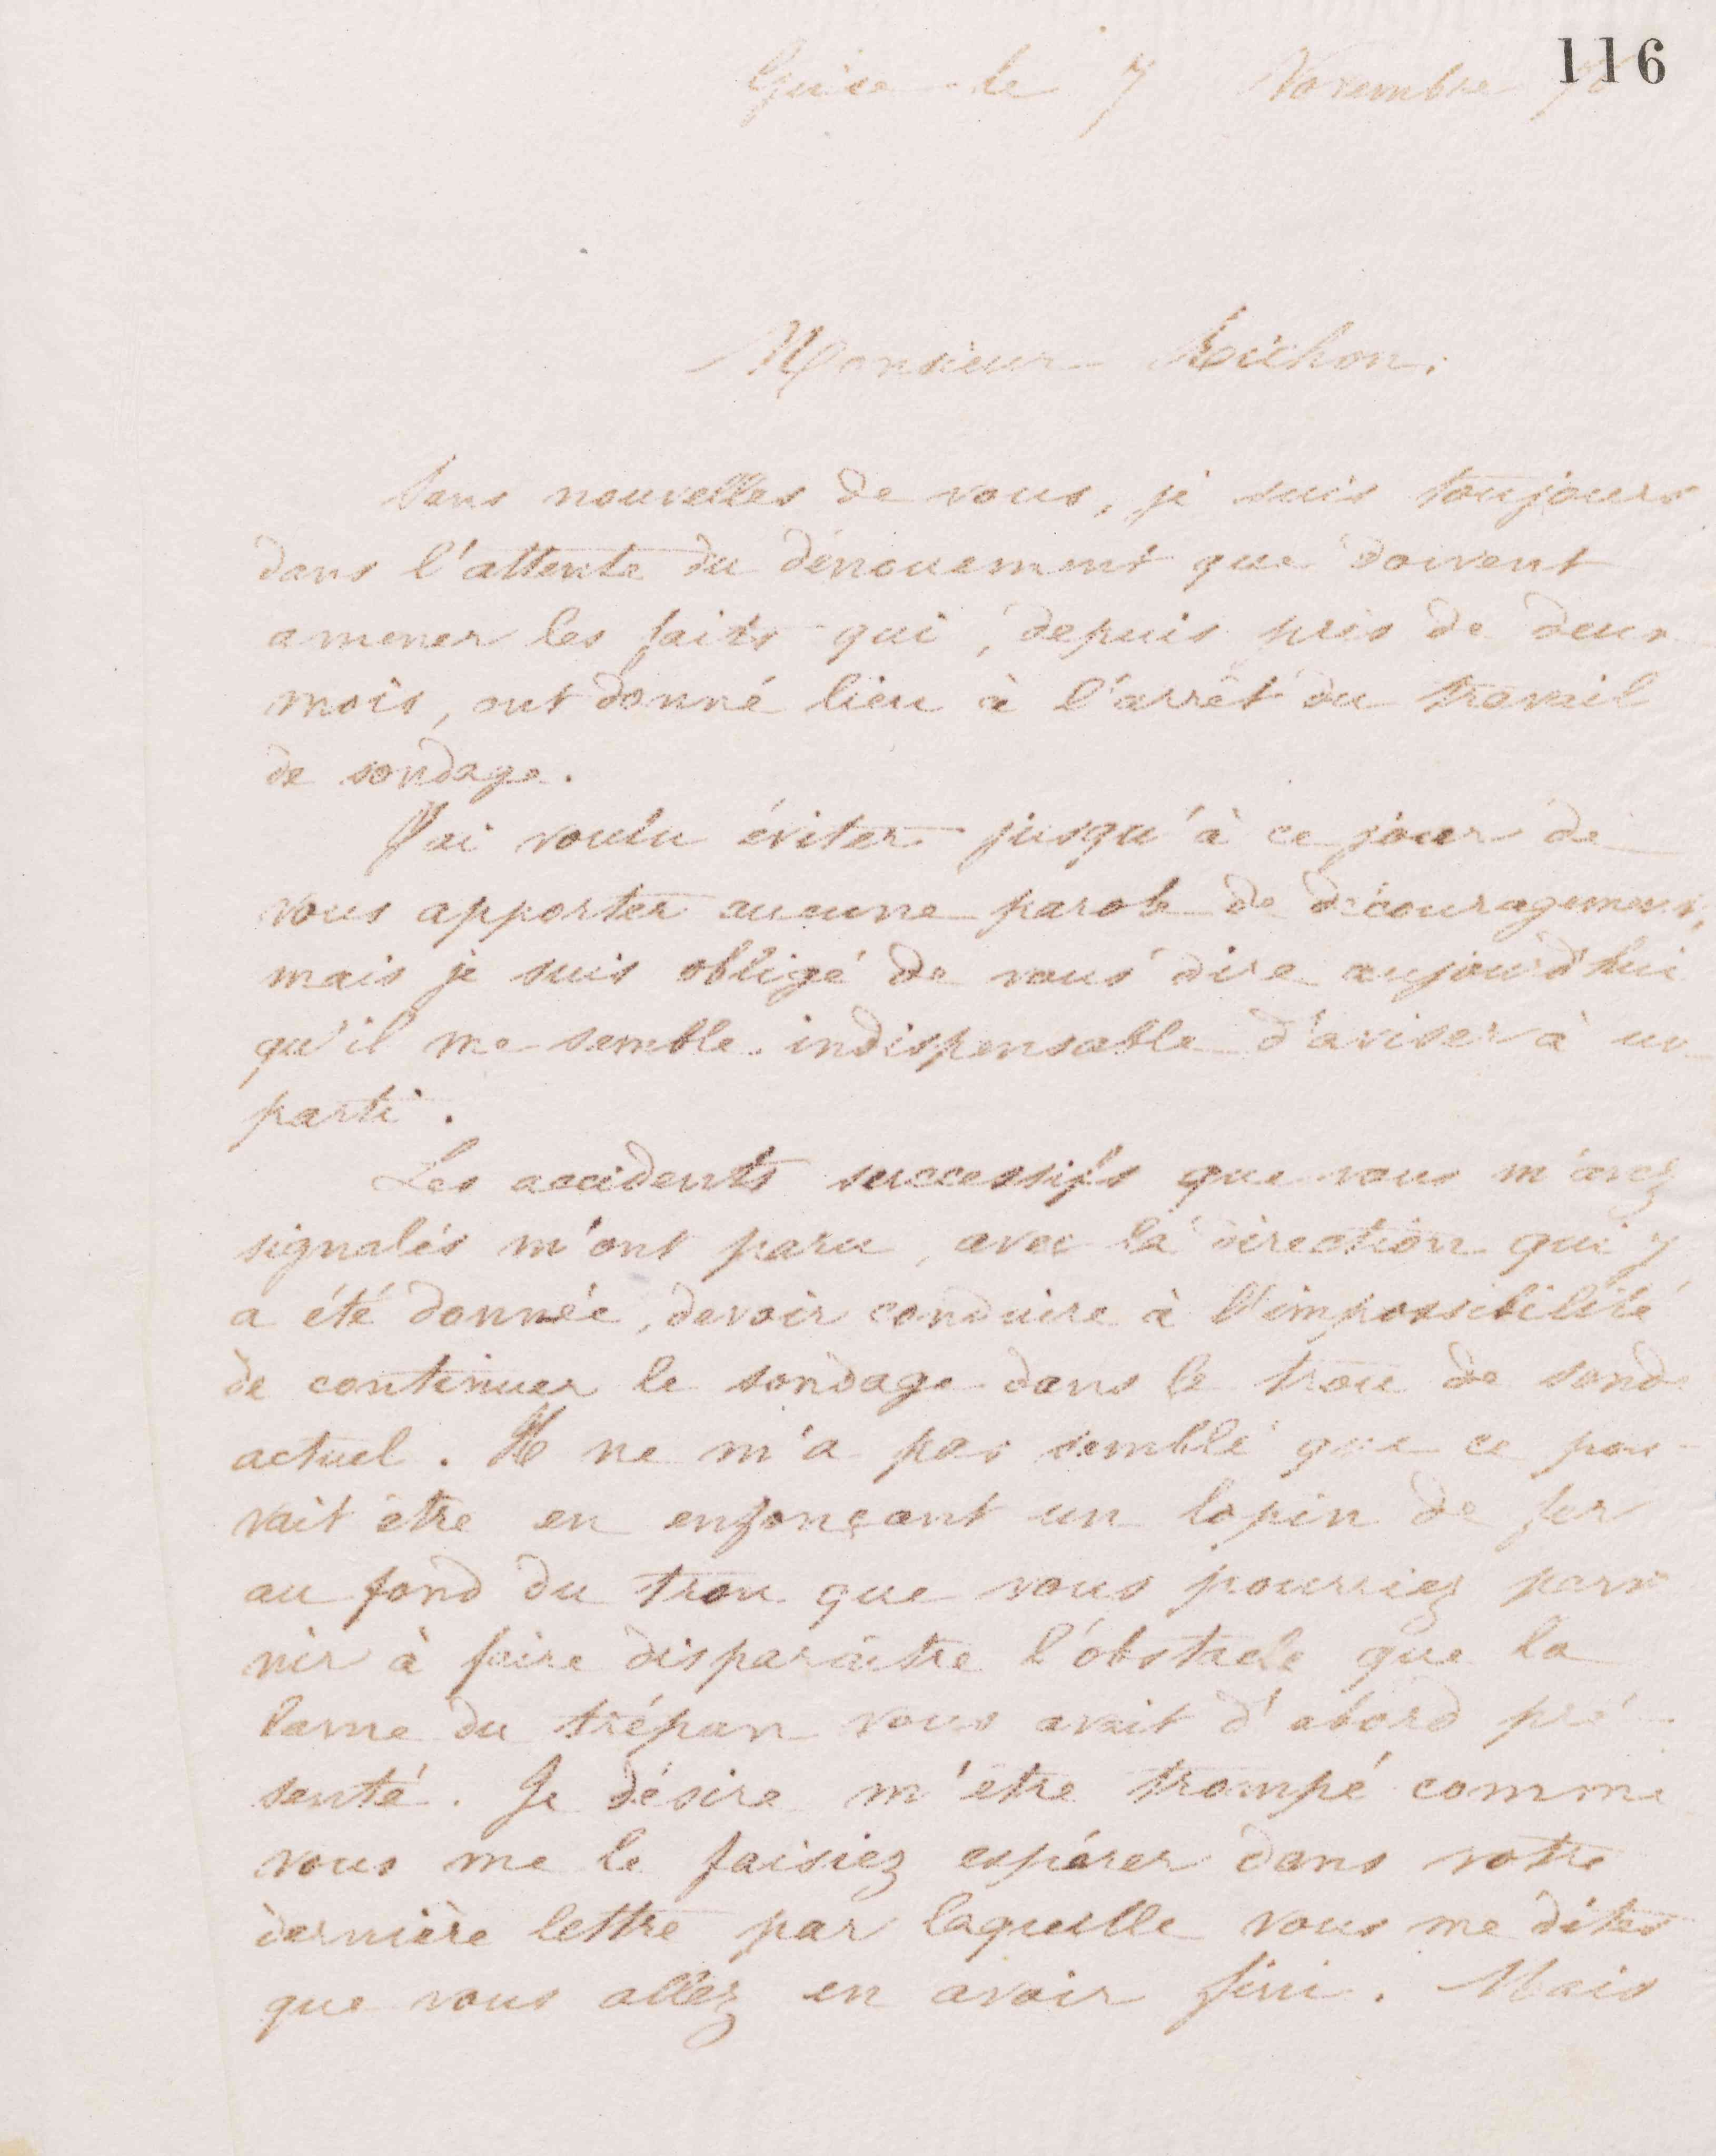 116
Guise le 7 Novembre
Monsieur Richon,
Sans nouvelles de vous, je suis toujours
dans l'attente du dénouement que doivent
amener les faits qui, depuis près de deux
mois, ont donné lieu à l'arrêt du travail
de sondage.
J'ai voulu éviter jusqu'à ce jour de
vous apporter aucune parole de découragement,
mais je suis obligé de vous dire aujourd'hui
qu'il me semble indispensable d'aviser à un
parti.
Les accidents successifs que vous m'avez
signalés m'ont paru, avec la direction qui y
a été donnée, devoir conduire à l'impossibilité
de continuer le sondage dans le trou de sonde
actuel. Il ne m'a pas semblé que ce pou-
vait être en enfonçant un lopin de fer
au fond du trou que vous pourriez parve
nir à faire disparaître l'obstacle que la
lame du trépan vous avait d'abord pré-
senté. Je désire m'être trompé comme
vous me le faisiez espérer dans votre
dernière lettre par laquelle vous me dites
que vous allez en avoir fini. Mais